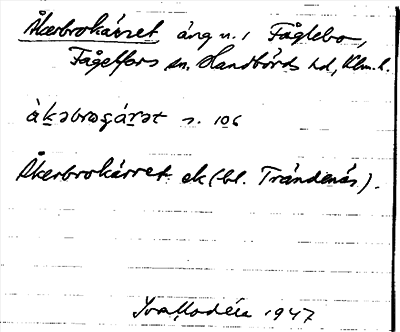 Åkerbrokärret äng n. i Fåglebo,
Fågelfors sn. Handbörds hd, Klm. l.
åkəbrogárət s. 106
Åkerbrokärret ek (bl. Trändenäs).
Ivar Modéer 1947